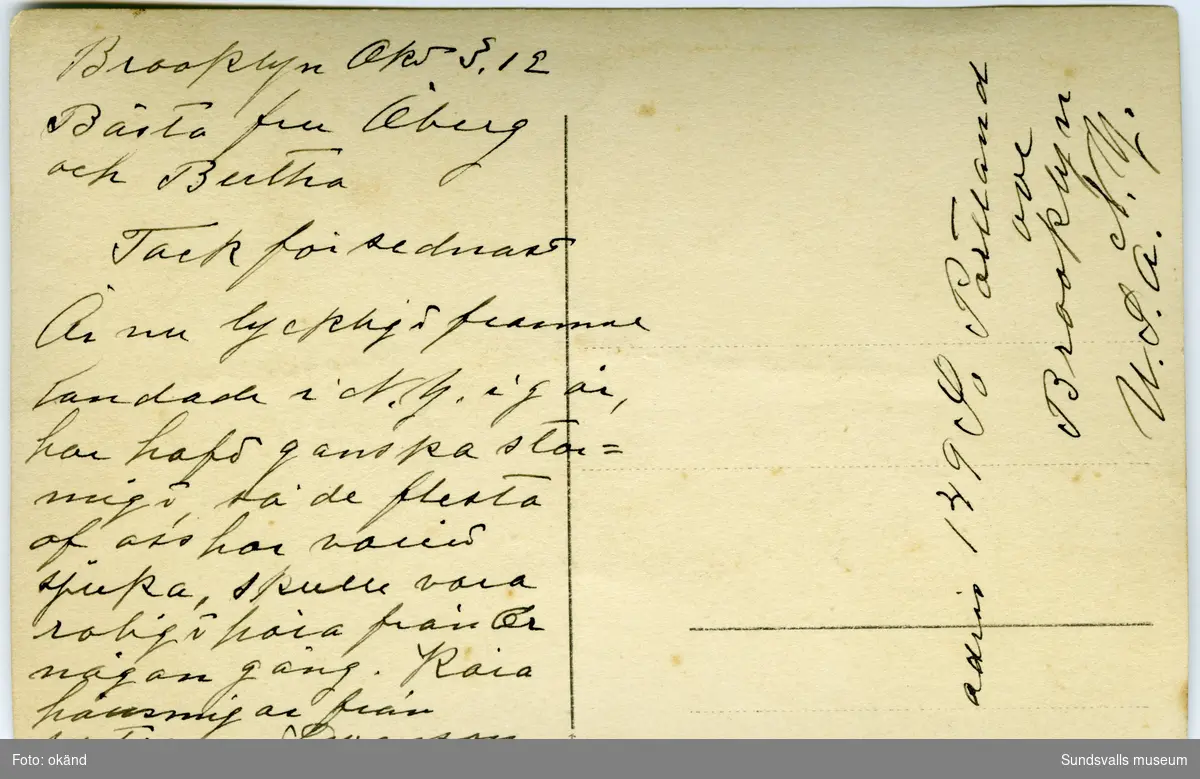 Brooklyn Okt 3.12
Bästa fru Åberg
och Bertha
Tack för sednast
Är nu lyckligt framme
landade i N.Y. igår,
har haft ganska stor=
migt, så de flesta
af oss har varit
sjuka, skulle vara
roligt höra från Er
någon gång. Kära
hälsningar från
Swanson
adris 139 So Portland
ave
Brooklyn
N.Y.
U.S.A.
Foto: okänd
Sundsvalls museum